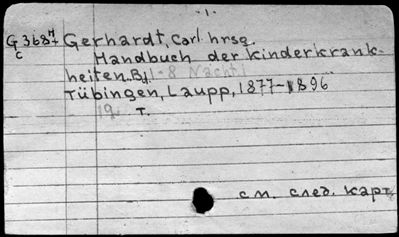 -1.
G 3687 Gerhardt, Carl hrsg.
c Handbuch der Kinderkrank-
heiten. Bd 1-8 Nacht.
Tübingen, Laupp, 1877-1896
т.
см. след. карт.